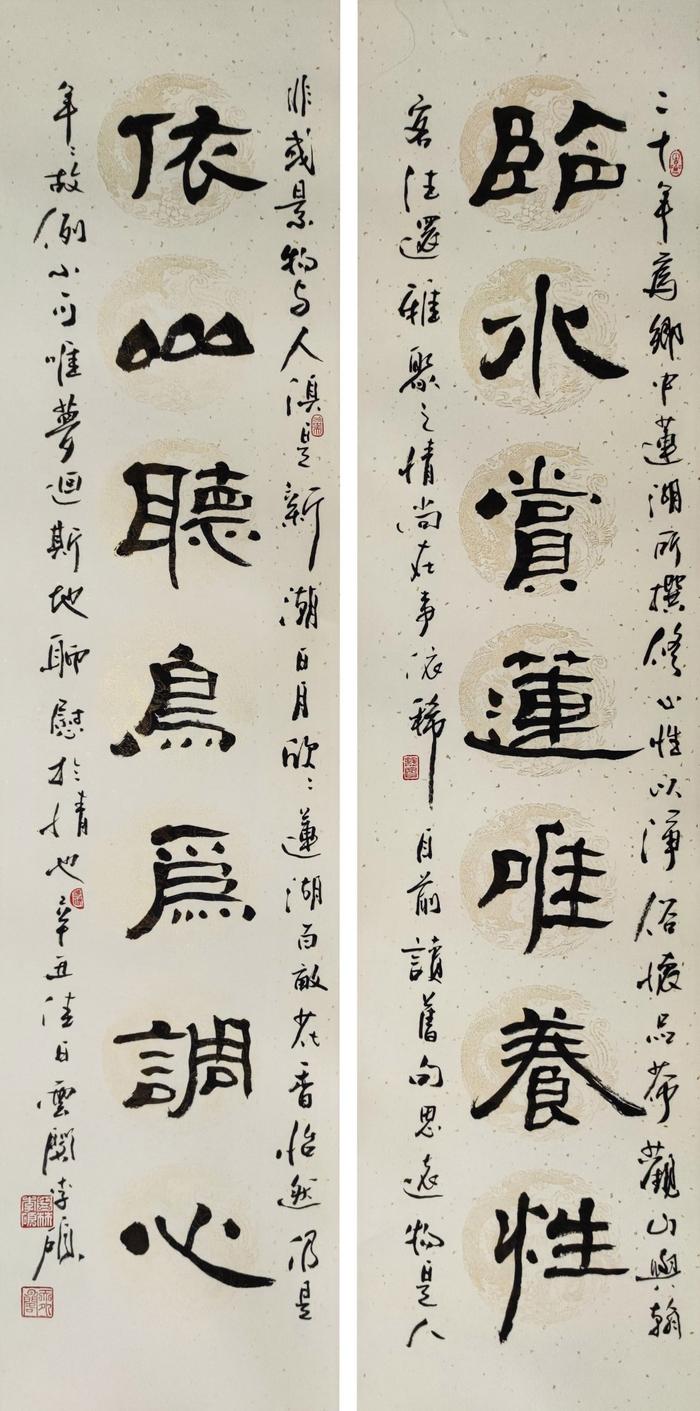 二十年為鄉中蓮湖所撰修心性以淨俗懷品茶觀山與翰
臨水賞蓮唯養性
客往還雅聚之情尚在事依稀目前讀舊句思遠物是人
非或景物与人俱是新潮日月欣〻蓮湖百畝花香怡然仍是
依山聽鳥爲調心
年〻故例小可唯夢迴斯地聊慰於情也辛丑佳日雲